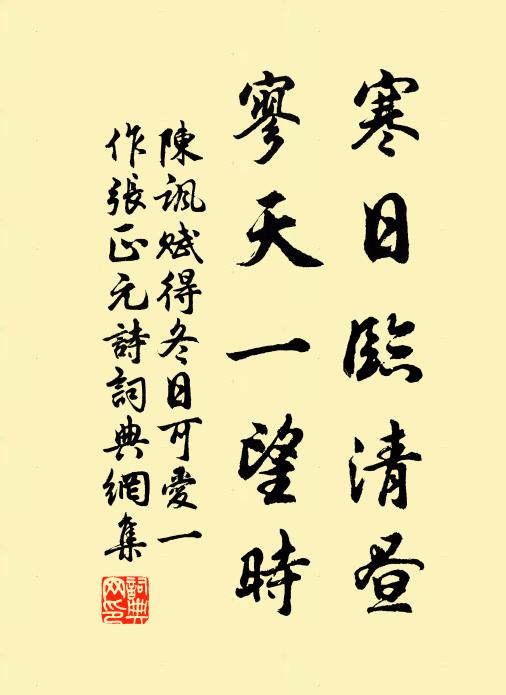 寒日臨清昼
寥天一望時
陳諷賦得冬日可愛一
作張正元詩詞典網集